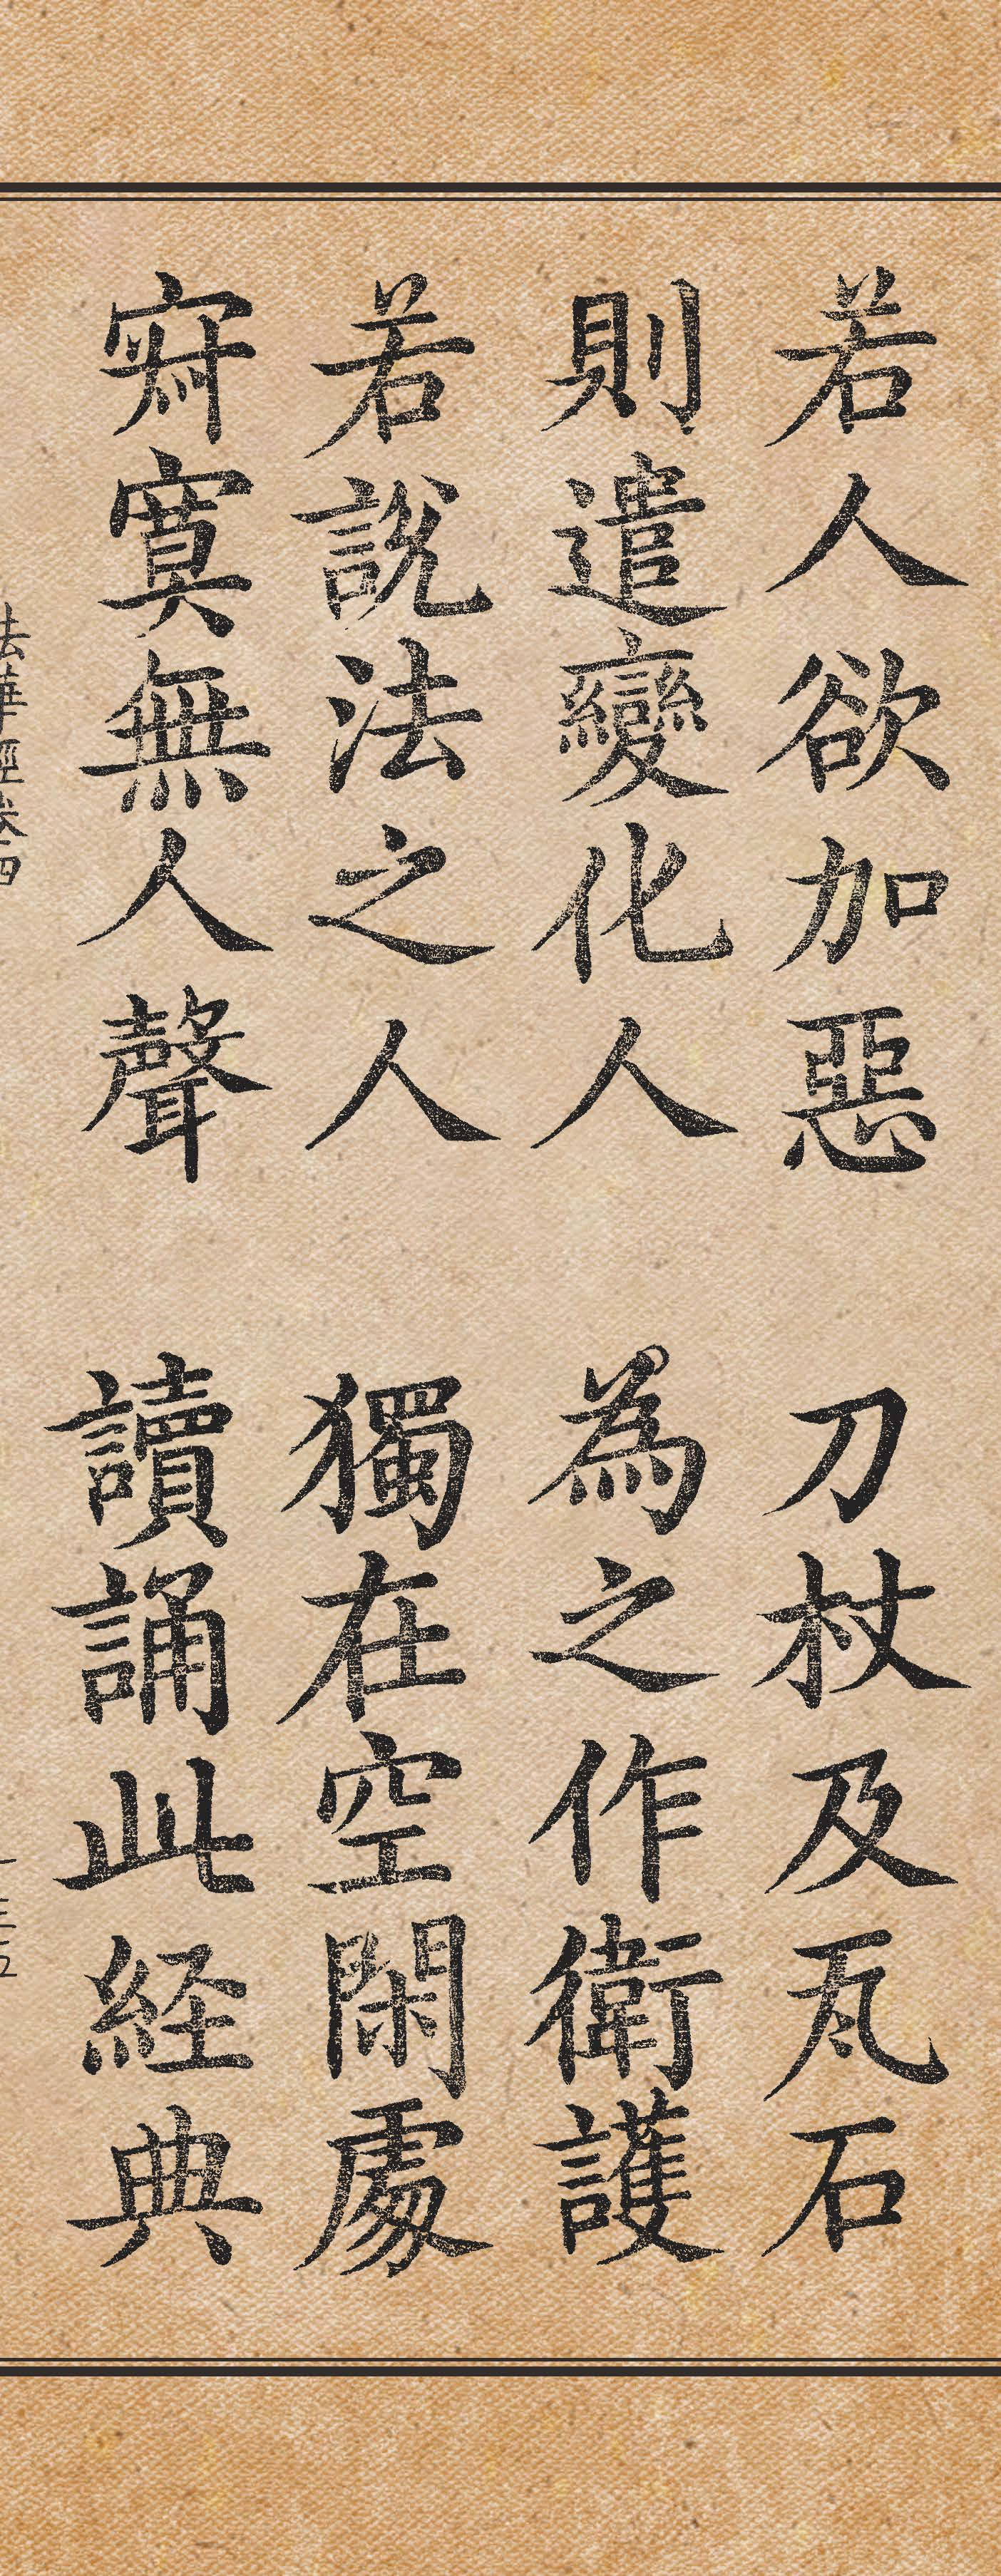 若人欲加惡 刀杖及瓦石
則遣變化人 為之作衛護
若說法之人 獨在空閑處
寂寞無人聲 讀誦此経典
法華經卷四